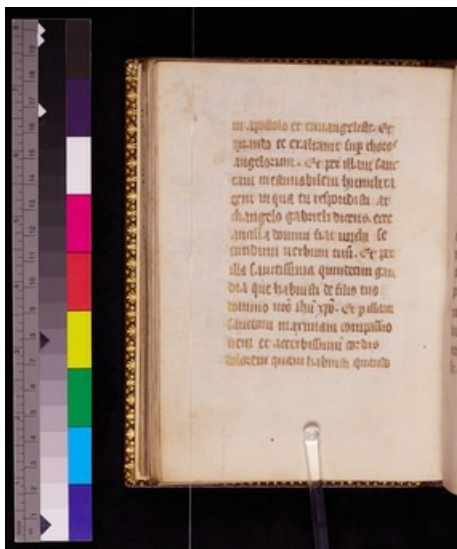 m apostolo et euuangeliste. Et
quando te exaltauit sup choros
angelorum. Et per illam sanc
tam inestimabilem humilita
tem in qua tu respondisti ar
changelo gabrieli dicens. ecce
ancilla domini fiat michi se
cundum uerbum tuū. Et per
illa sanctissima quindecim gau
dia que habuisti de filio tuo
domino nrō ihū xpō. Et p illam
sanctam maximam compassio
nem et acerbissimū cordis
dolorem quem habuisti quando